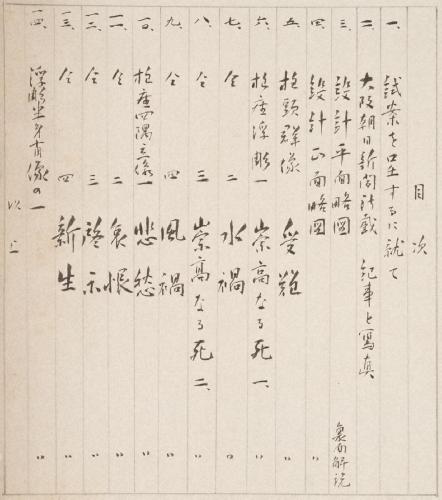 目次
一、試案を呈するに就て
二、大阪朝日新聞所載 紀事と寫真
三、設計平面略図 裏面解説
四、設計正面略図 〃
五、柱頭群像 受難 〃
六、柱座浮彫一 崇高なる死 一、 〃
七、仝 二 水禍 〃
八、仝 三 崇高なる死 二、 〃
九、仝 四 風禍 〃
一〇、柱座四隅立像一 悲愁 〃
一一、仝 二 哀恨 〃
一二、仝 三 啓示 〃
一三、仝 四 新生 〃
一四、浮彫半身肖像の一 〃
以上